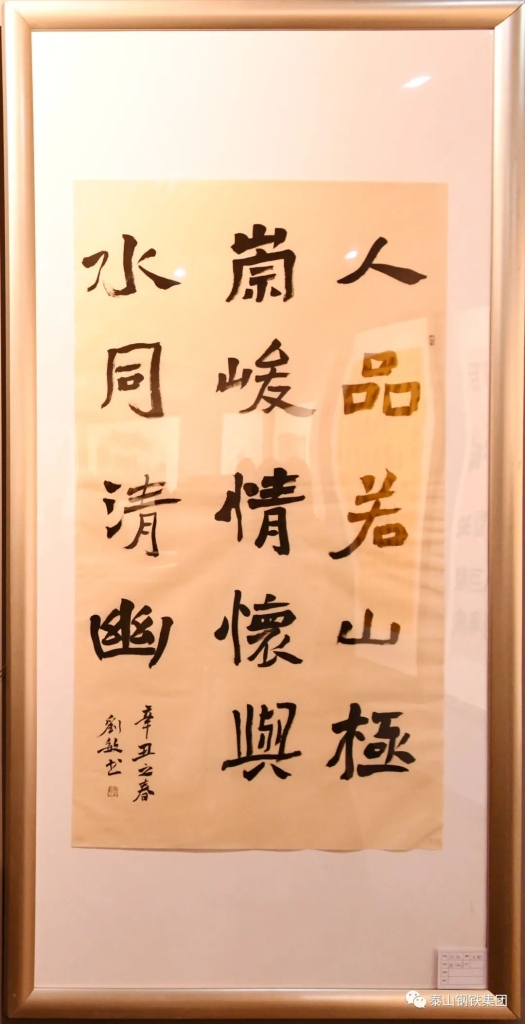 人品若山極
崇峻情懷與
水同清幽
辛丑之春
劉敏書
泰山钢铁集团